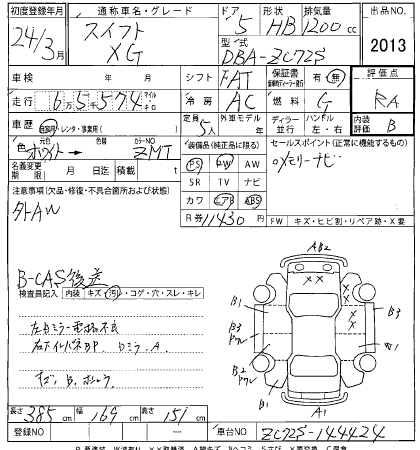 初度登録年月 通称車名・グレード ドア 形状 排気量 出品NO.
24/3月 スイフト XG 5 HB 1200cc 2013
型式 DBA-ZC72S
車検 年 月 シフト FAT 保証書 有・無 評価点
走行 6万5千574 マイル キロ 冷房 AC 燃料 G RA
車歴 自家用・レンタ・事業用( ) 定員 5人 外車モデル 年 ディーラー・並行 ハンドル 左・右 内装評価 B
色 ホワイト→ 色替 カラーNO ZMT
名義変更期限 月 日迄 積載量 t
装備品(純正品に限る) セールスポイント(正常に機能するもの)
PS PW AW メモリーナビ
SR TV ナビ
カワ エアB ABS
R券 11430円 FW キズ・ヒビ割・リペア跡・X要
注意事項(欠品・修復・不具合箇所および状態)
タトAW
B-CAS後送
検査員記入 内装 キズ・汚・コゲ・穴・スレ・キレ
左右ミラー電格不良
右下インパネBP. Dミラー.A.
キズ.B.
AB2
B1 B3
B3
B2 W1
B1
A1
長さ 385cm 幅 169cm 高さ 151cm
登録NO ー 車台NO ZC72S-144424